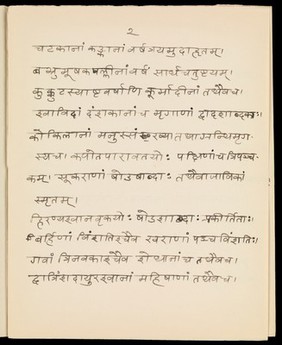 २
चटकानां कङ्कानां वर्षत्रयमुदाहृतम्।
बभ्रुमूषकपल्लीनां वर्षं सार्धचतुष्टयम्।
कुक्कुटस्याष्टवर्षाणि कूर्मादीनां तथैवच।
श्वाविदां दंशकानांच मृगाणां द्वादशाब्दकम्।
कोकिलानां मनुस्संख्या तथा
स्यच। कपोतपारावतयोः पक्षिणांच त्रिपञ्च-
कम्। सूकराणां षोडशाब्दाः तथैवाजाविकां
स्मृतम्।
हिरण्यश्वानवृकयोः षोडशाब्दाः प्रकीर्तिताः।
बर्हिणां विंशतिश्चैव खराणां पञ्चविंशतिः।
गवां त्रिनवकाश्चैव शेयानांच तथैवच।
द्वात्रिंशदायुरश्वानां महिषाणां तथैवच।